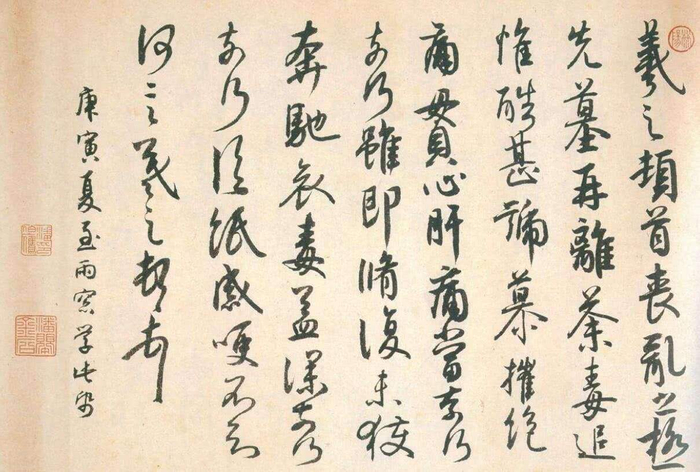 羲之頓首喪亂之極
先墓再離荼毒追
惟酷甚號慕摧絕
痛貫心肝痛當奈何
奈何雖即脩復未獲
奔馳哀毒益深奈何
奈何臨紙感哽不知
何言羲之頓首
庚寅夏至雨窓学此